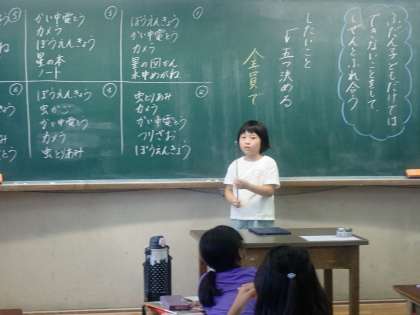 ふだん子どもだけでは
できないことをして、
しぜんとふれ合う
したいこと
五つ決める
全員で
①
ぼうえんきょう
かい中電とう
カメラ
星の図かん
水中めがね
③
かい中電とう
カメラ
ぼうえんきょう
星の本
ノート
⑤
虫とりあみ
カメラ
かい中電とう
つりざお
ぼうえんきょう
ぼうえんきょう
虫かご
かい中電とう
カメラ
虫とりあみ